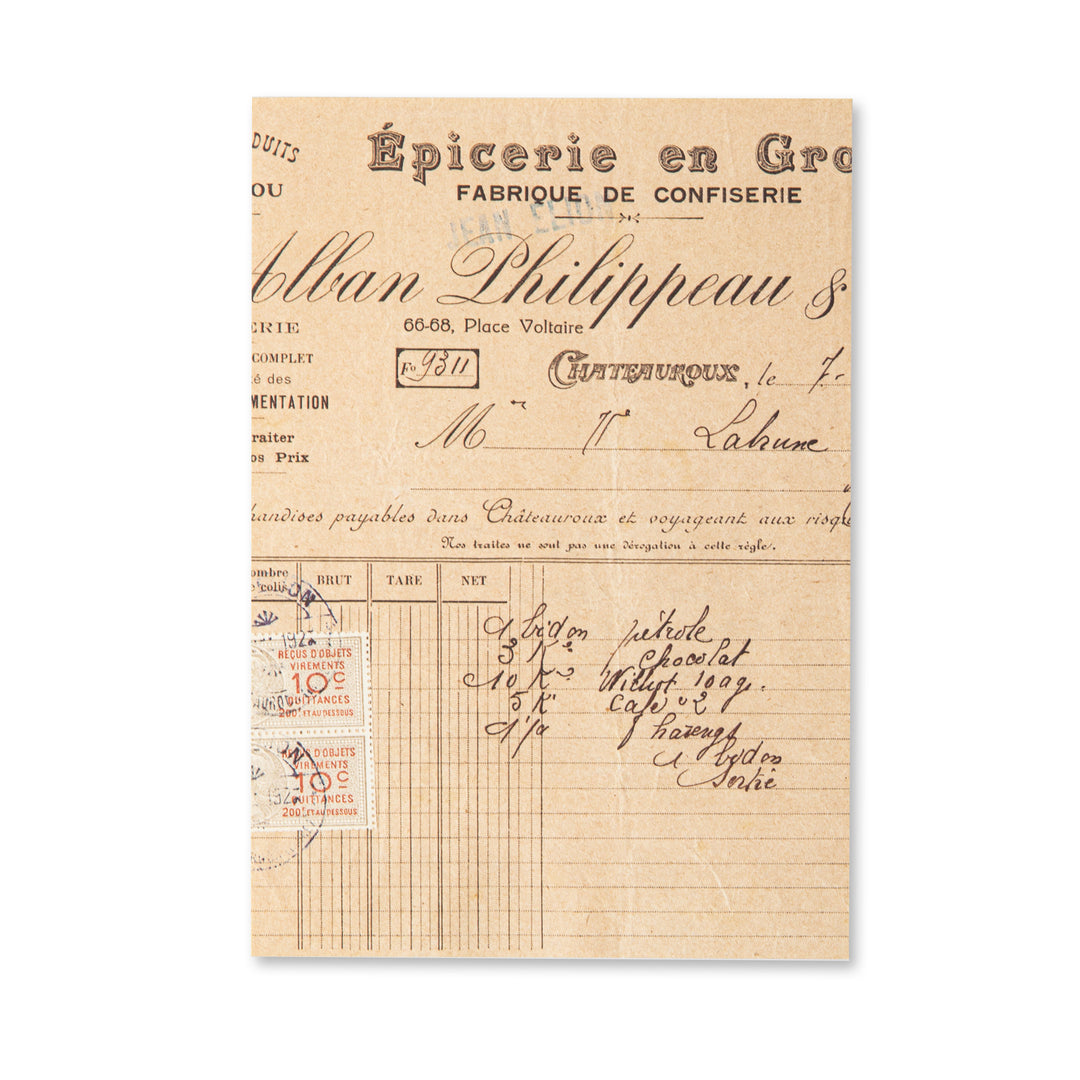 DUITS
OU
Épicerie en Gro
FABRIQUE DE CONFISERIE
JEAN ELION
Alban Philippeau &
66-68, Place Voltaire
ERIE
COMPLET
té des
MENTATION
raiter
os Prix
Fo 9311
CHATEAUROUX, le 7-
M Ve Labrune
handises payables dans Châteauroux et voyageant aux risq
Nos traites ne sont pas une dérogation à cette règle.
ombre
e colis
BRUT
TARE
NET
1 bidon pétrole
3 Kº chocolat
10 Kº 10 ag.
5 K Café n° 2
harengs
1 bidon
Sortie
192
REÇUS D'OBJETS
VIREMENTS
10c
QUITTANCES
200F ET AU DESSOUS
192
REÇUS D'OBJETS
VIREMENTS
10c
QUITTANCES
200F ET AU DESSOUS